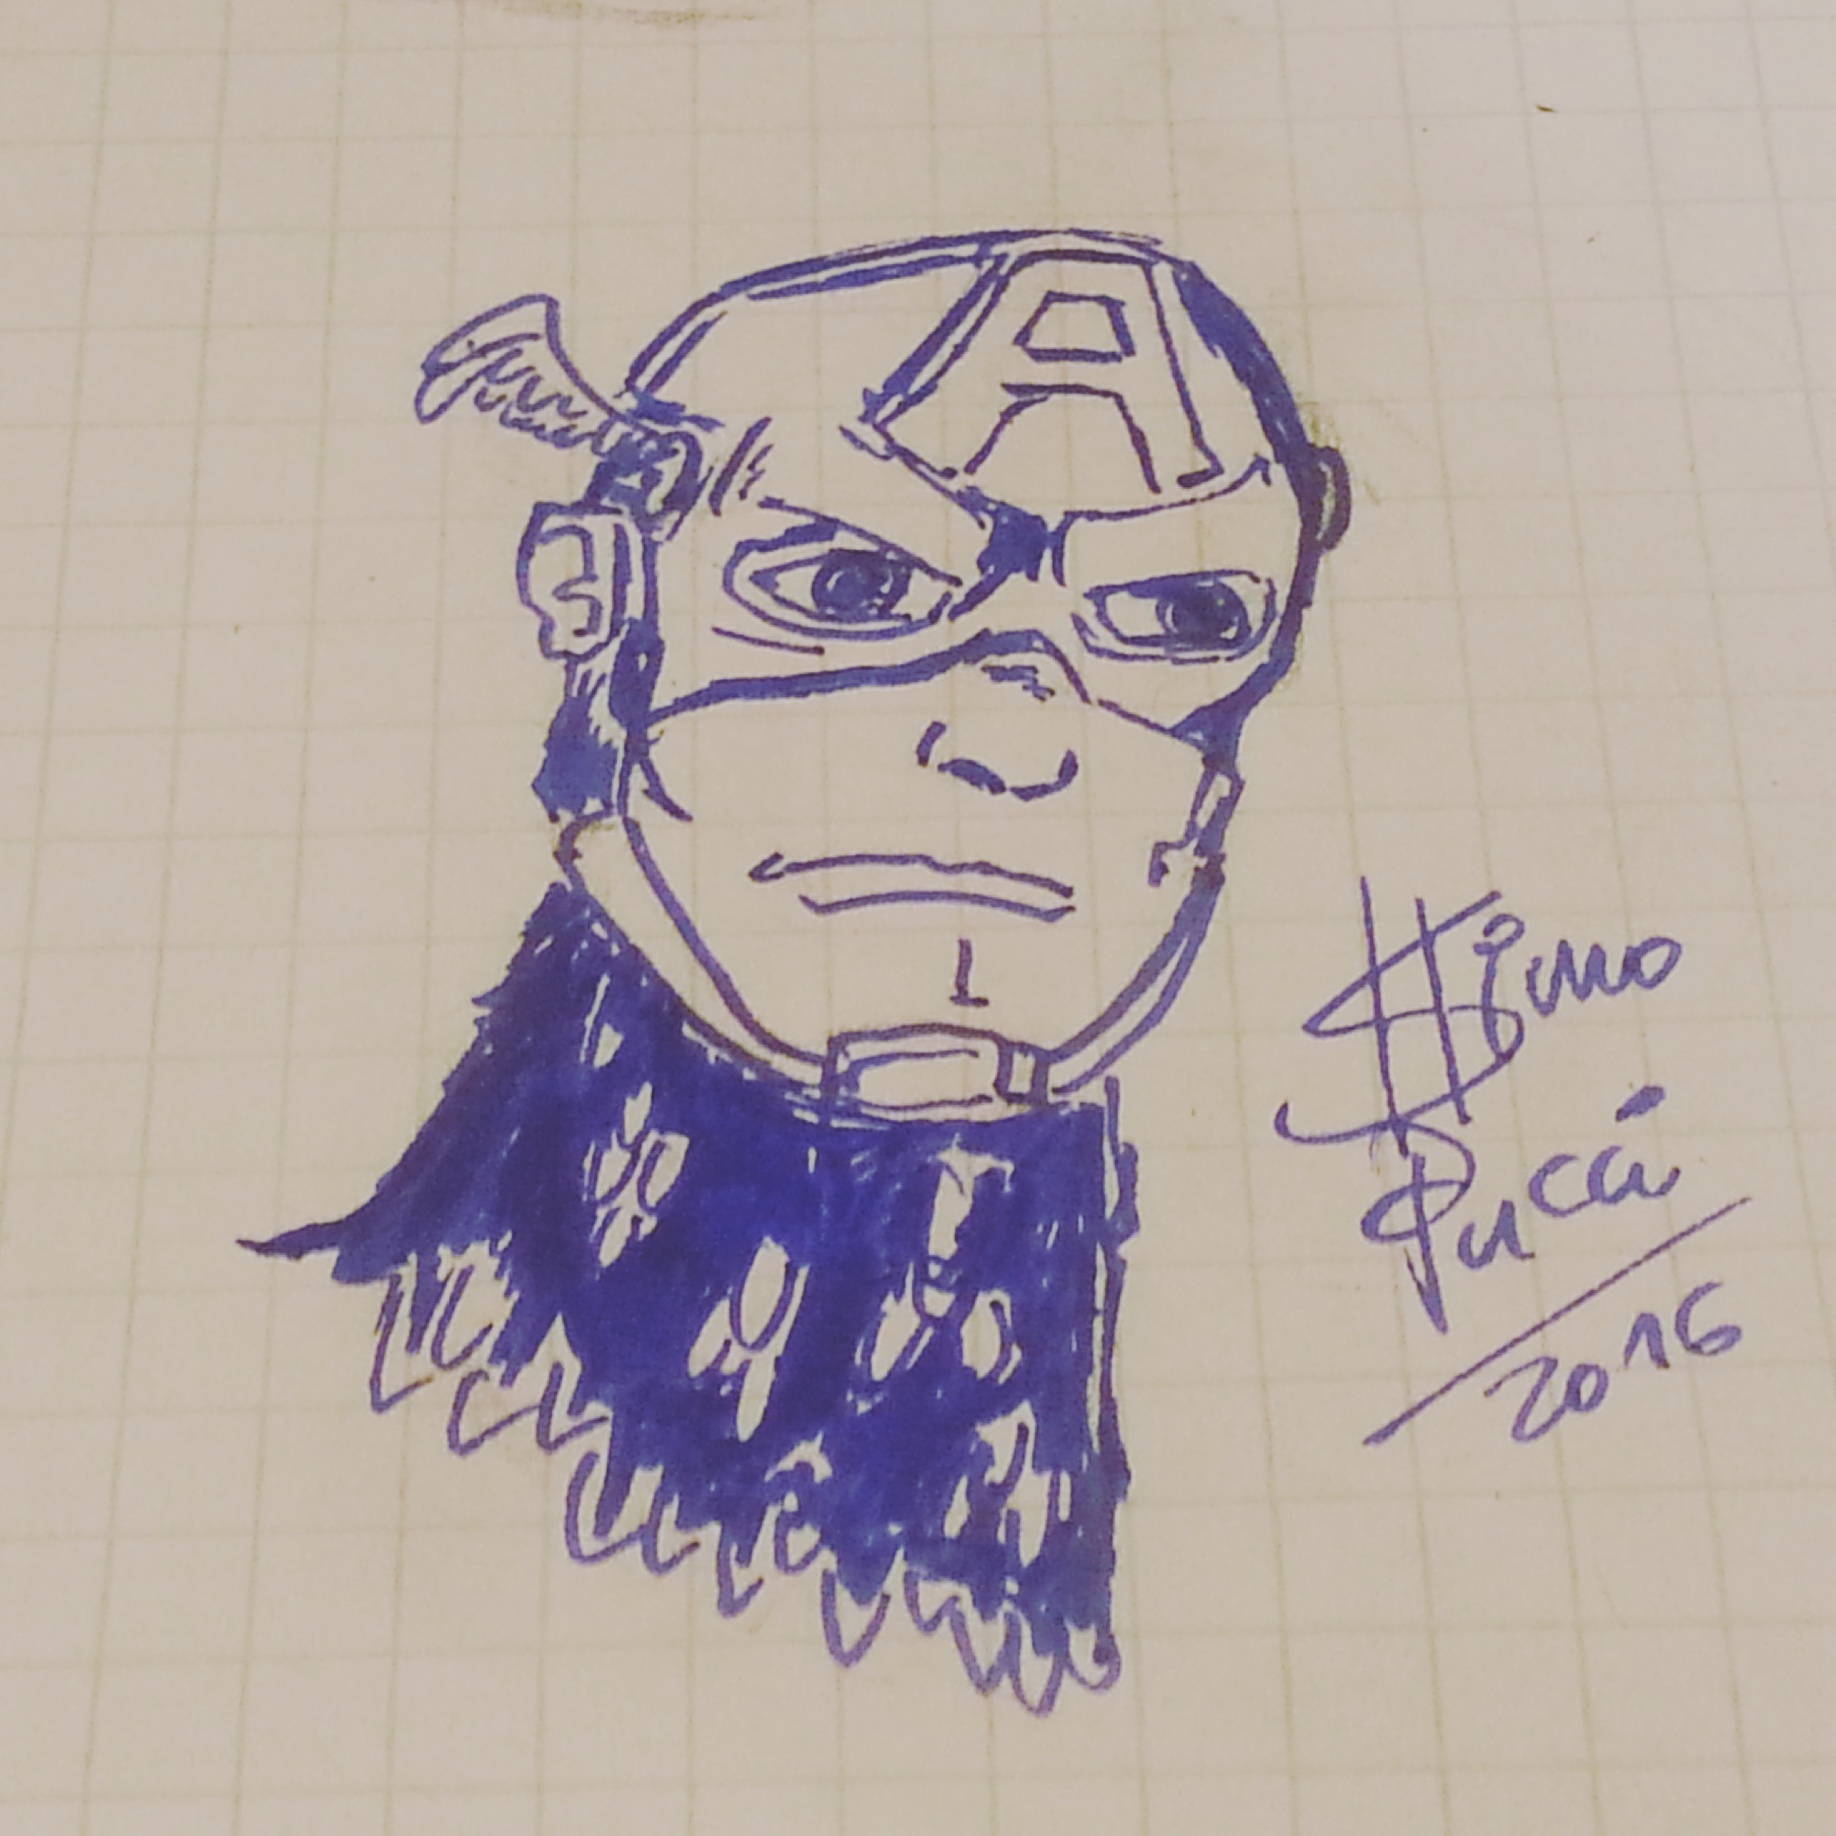 A
Simo
Pucci
2016